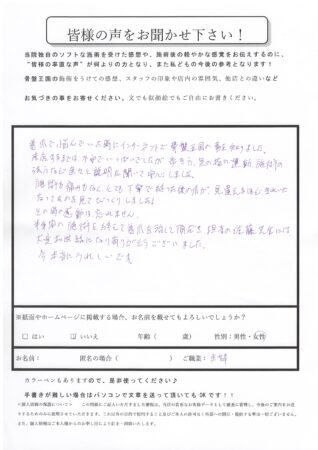 皆様の声をお聞かせ下さい!
当院独自のソフトな施術を受けた感想や、施術後の軽やかな感覚をお伝えするのに、
"皆様の率直な声"が何よりの力となり、また私どもの今後の参考となります!
骨盤王国の施術をうけての感想、スタッフの印象や店内の雰囲気、他店との違いなど
お気づきの事をお寄せください。文でも似顔絵でもご自由にお書きください。
巻爪で悩んでいた時にインターネットで骨盤王国の事を知りました。
来店するまでは不安でいっぱいでしたが 歩き方、足の指の運動、施術の
説明を聞いて安心しました。
施術は痛みもなく、とても丁寧で
その時の感動は忘れません。
半年間の施術を終えて巻爪を治して頂き 担当の佐藤先生には
大変お世話になりありがとうございました。
今本当にうれしいです。
※紙面やホームページに掲載する場合、お名前を載せてもよろしいでしょうか?
□はい ☑いいえ 年齢( 歳) 性別:男性・女性
お名前: 匿名の場合( ) ご職業:主婦
カラーペンもありますので、是非使ってください♪
手書きが難しい場合はパソコンで文章を送って頂いてもOKです!!